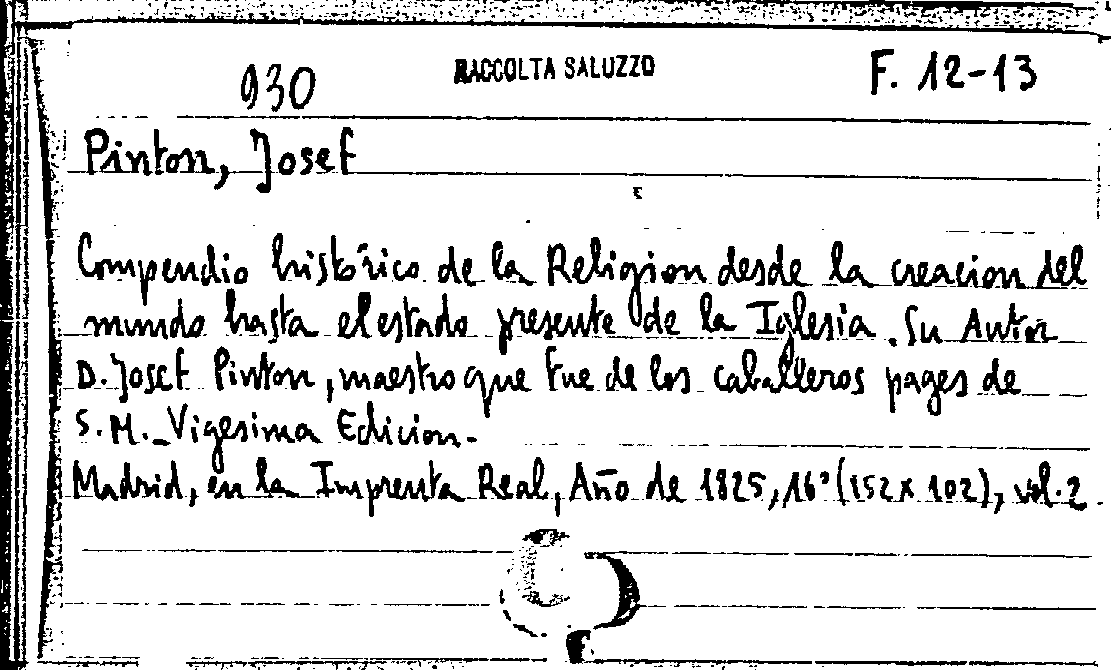 930 RACCOLTA SALUZZO F. 12-13
Pinton, Josef
Compendio histórico de la Religion desde la creacion del
mundo hasta el estado presente de la Iglesia. Su Autor
D. Josef Pinton, maestro que fue de los caballeros pages de
S. M. _ Vigesima Edicion. -
Madrid, en la Imprenta Real, Año de 1825, 16° (152 x 102), vol. 2